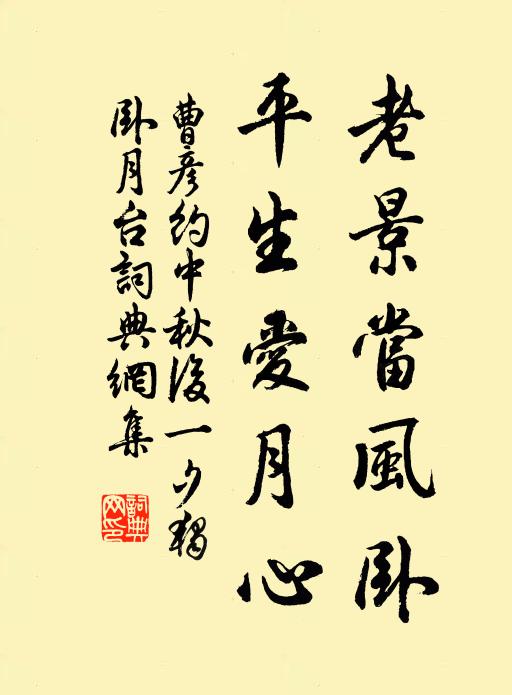 老景當風卧
平生愛月心
曹彦約中秋後一夕獨
卧月台詞典網集
詞典
网印